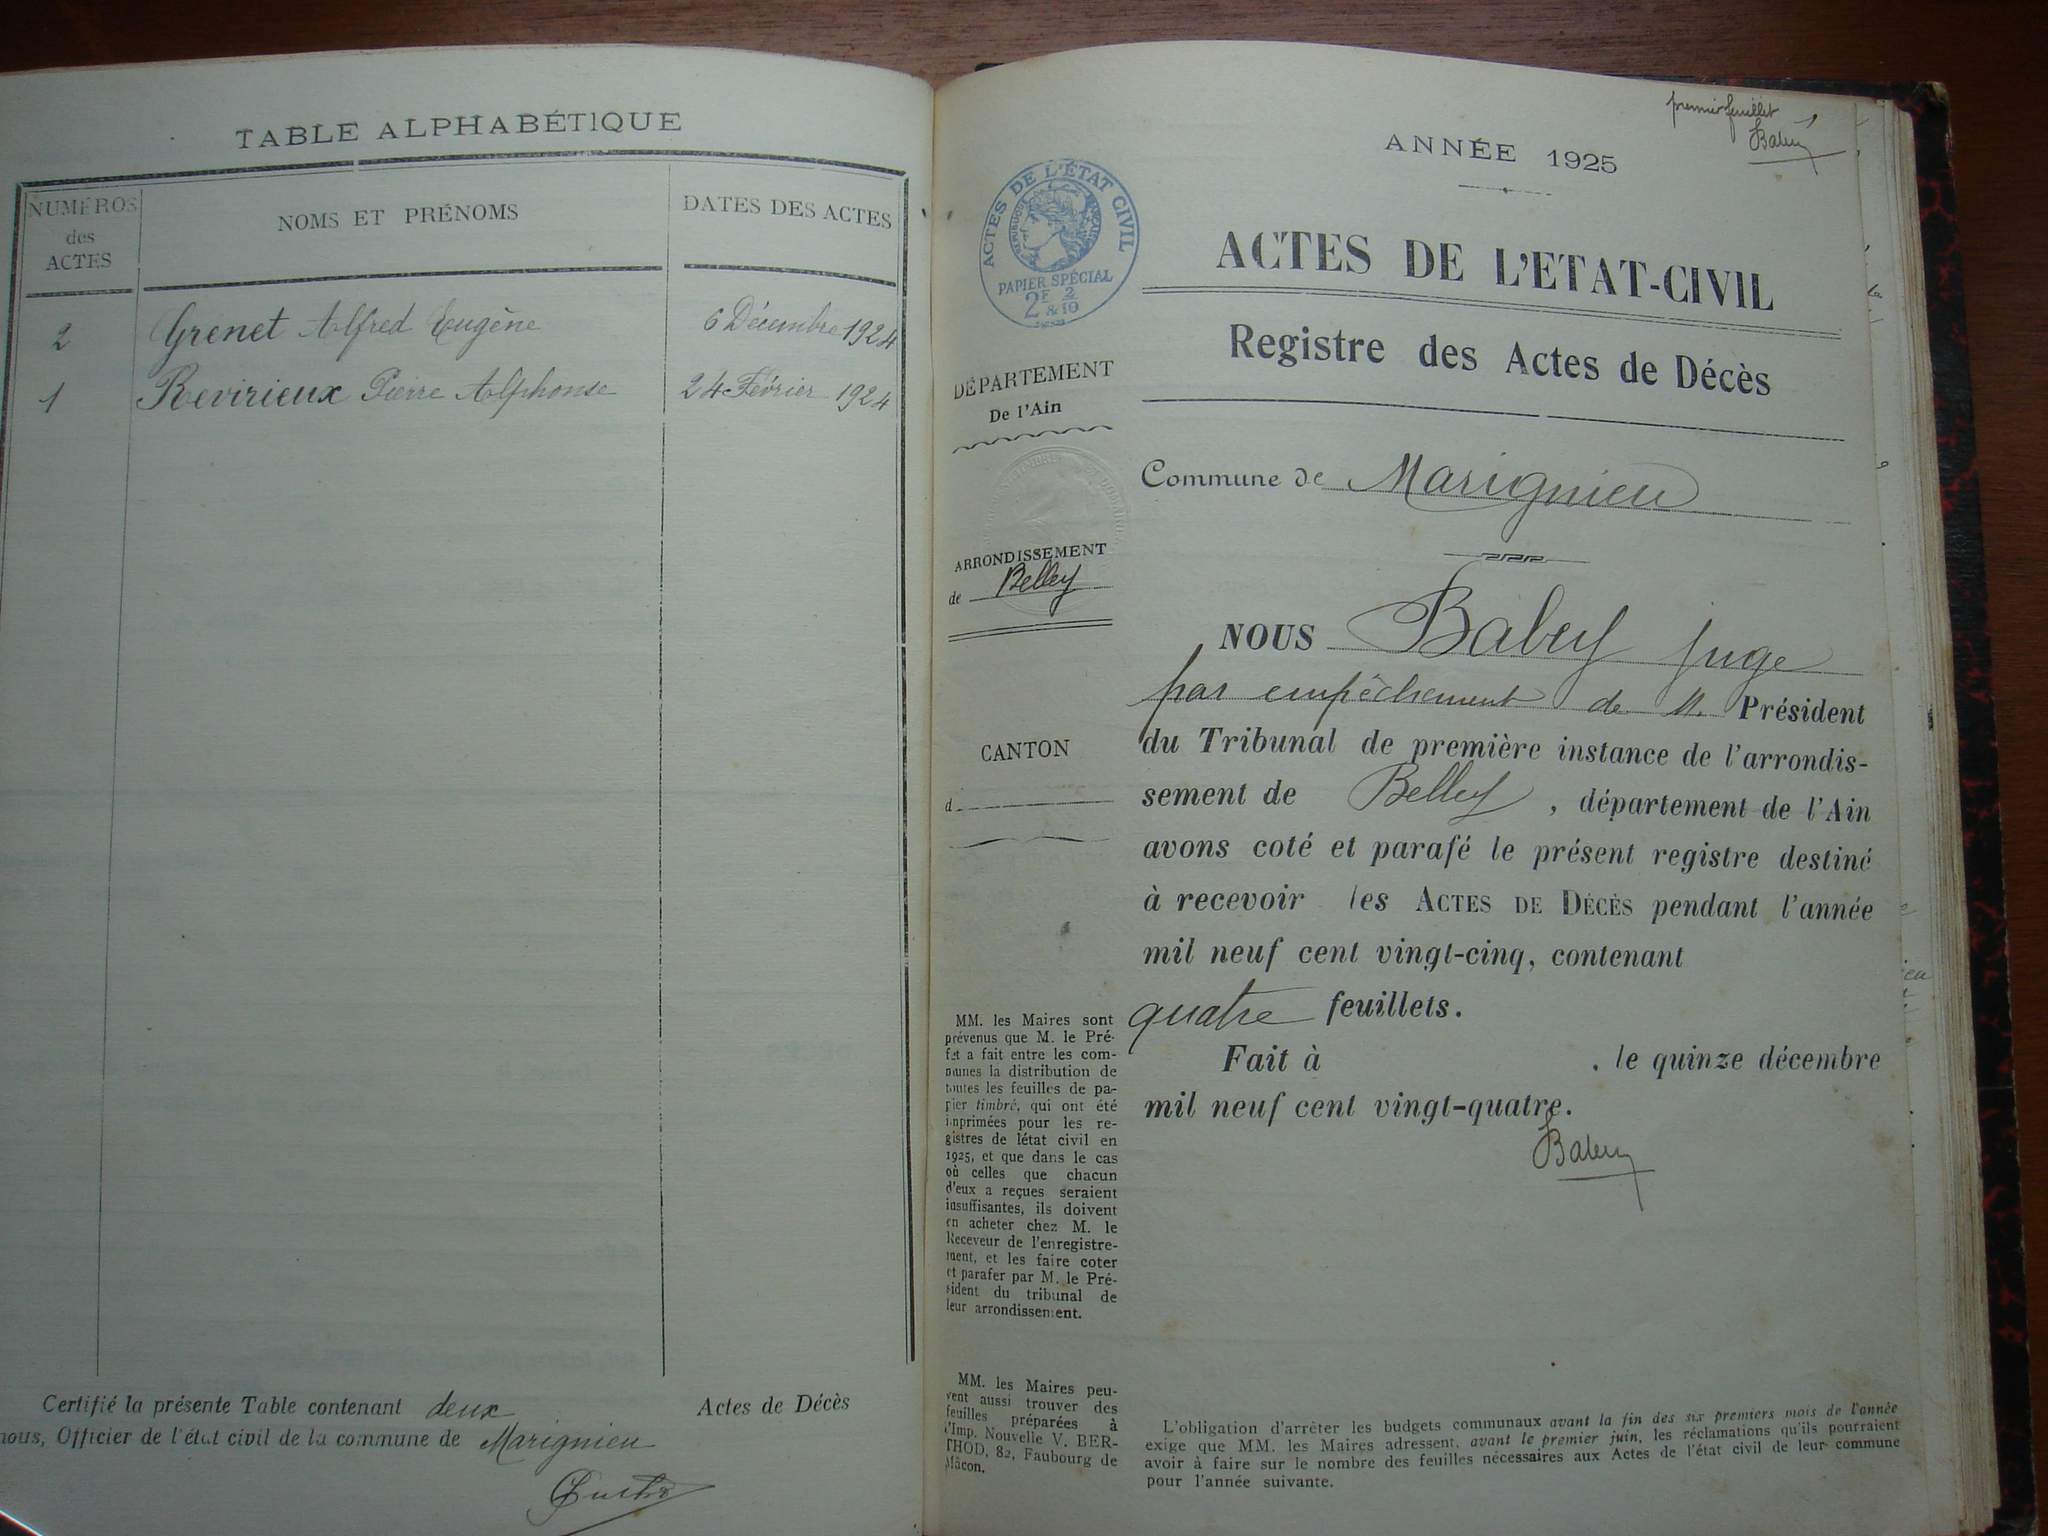 TABLE ALPHABÉTIQUE
NUMÉROS
des
ACTES
NOMS ET PRÉNOMS
DATES DES ACTES
2 Grenet Alfred Eugène 6 Décembre 1924
1 Revirieux Pierre Alphonse 24 Février 1924
Certifié la présente Table contenant deux Actes de Décès
nous, Officier de l'état civil de la commune de Marignieu
premier feuillet
Babey
ANNÉE 1925
ACTES DE L'ÉTAT CIVIL
RÉPUBLIQUE FRANÇAISE
PAPIER SPÉCIAL
2F & 2/10
ACTES DE L'ETAT-CIVIL
Registre des Actes de Décès
DÉPARTEMENT
De l'Ain
Commune de Marignieu
ARRONDISSEMENT
de Belley
CANTON
d
NOUS Babey juge
par empêchement de M. Président
du Tribunal de première instance de l'arrondis-
sement de Belley, département de l'Ain
avons coté et parafé le présent registre destiné
à recevoir les ACTES DE DÉCÈS pendant l'année
mil neuf cent vingt-cinq, contenant
quatre feuillets.
Fait à , le quinze décembre
mil neuf cent vingt-quatre.
Babey
MM. les Maires sont
prévenus que M. le Pré-
fet a fait entre les com-
munes la distribution de
toutes les feuilles de pa-
pier timbré, qui ont été
imprimées pour les re-
gistres de létat civil en
1925, et que dans le cas
où celles que chacun
d'eux a reçues seraient
insuffisantes, ils doivent
en acheter chez M. le
Receveur de l'enregistre-
ment, et les faire coter
et parafer par M. le Pré-
sident du tribunal de
leur arrondissement.
MM. les Maires peu-
vent aussi trouver des
feuilles préparées à
l'Imp. Nouvelle V. BER-
THOD, 82, Faubourg de
Mâcon.
L'obligation d'arrêter les budgets communaux avant la fin des six premiers mois de l'année
exige que MM. les Maires adressent, avant le premier juin, les réclamations qu'ils pourraient
avoir à faire sur le nombre des feuilles nécessaires aux Actes de l'état civil de leur commune
pour l'année suivante.